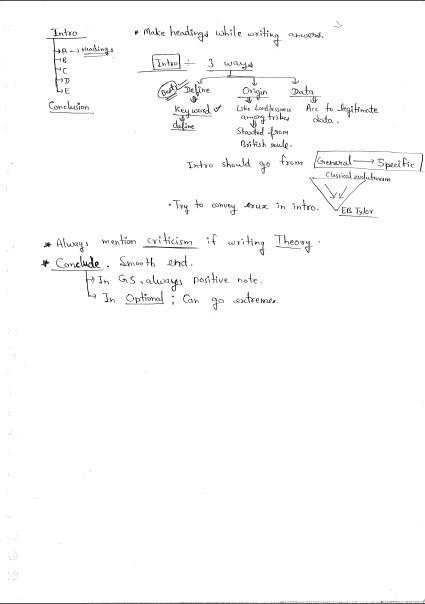 Intro
→A → Headings
→B
→C
→D
→E
Conclusion
* Make headings while writing answers.
Intro ÷ 3 ways
Best Define
Key word
define
Origin
Like Landlessness
among tribes
Started from
British rule.
Data
Acc to legitimate
data.
Intro should go from General → Specific
Classical evolutionism
EB Tylor
• Try to convey crux in intro.
* Always mention criticism if writing Theory.
* Conclude, Smooth end.
→ In GS, always positive note.
→ In Optional; Can go extremes.